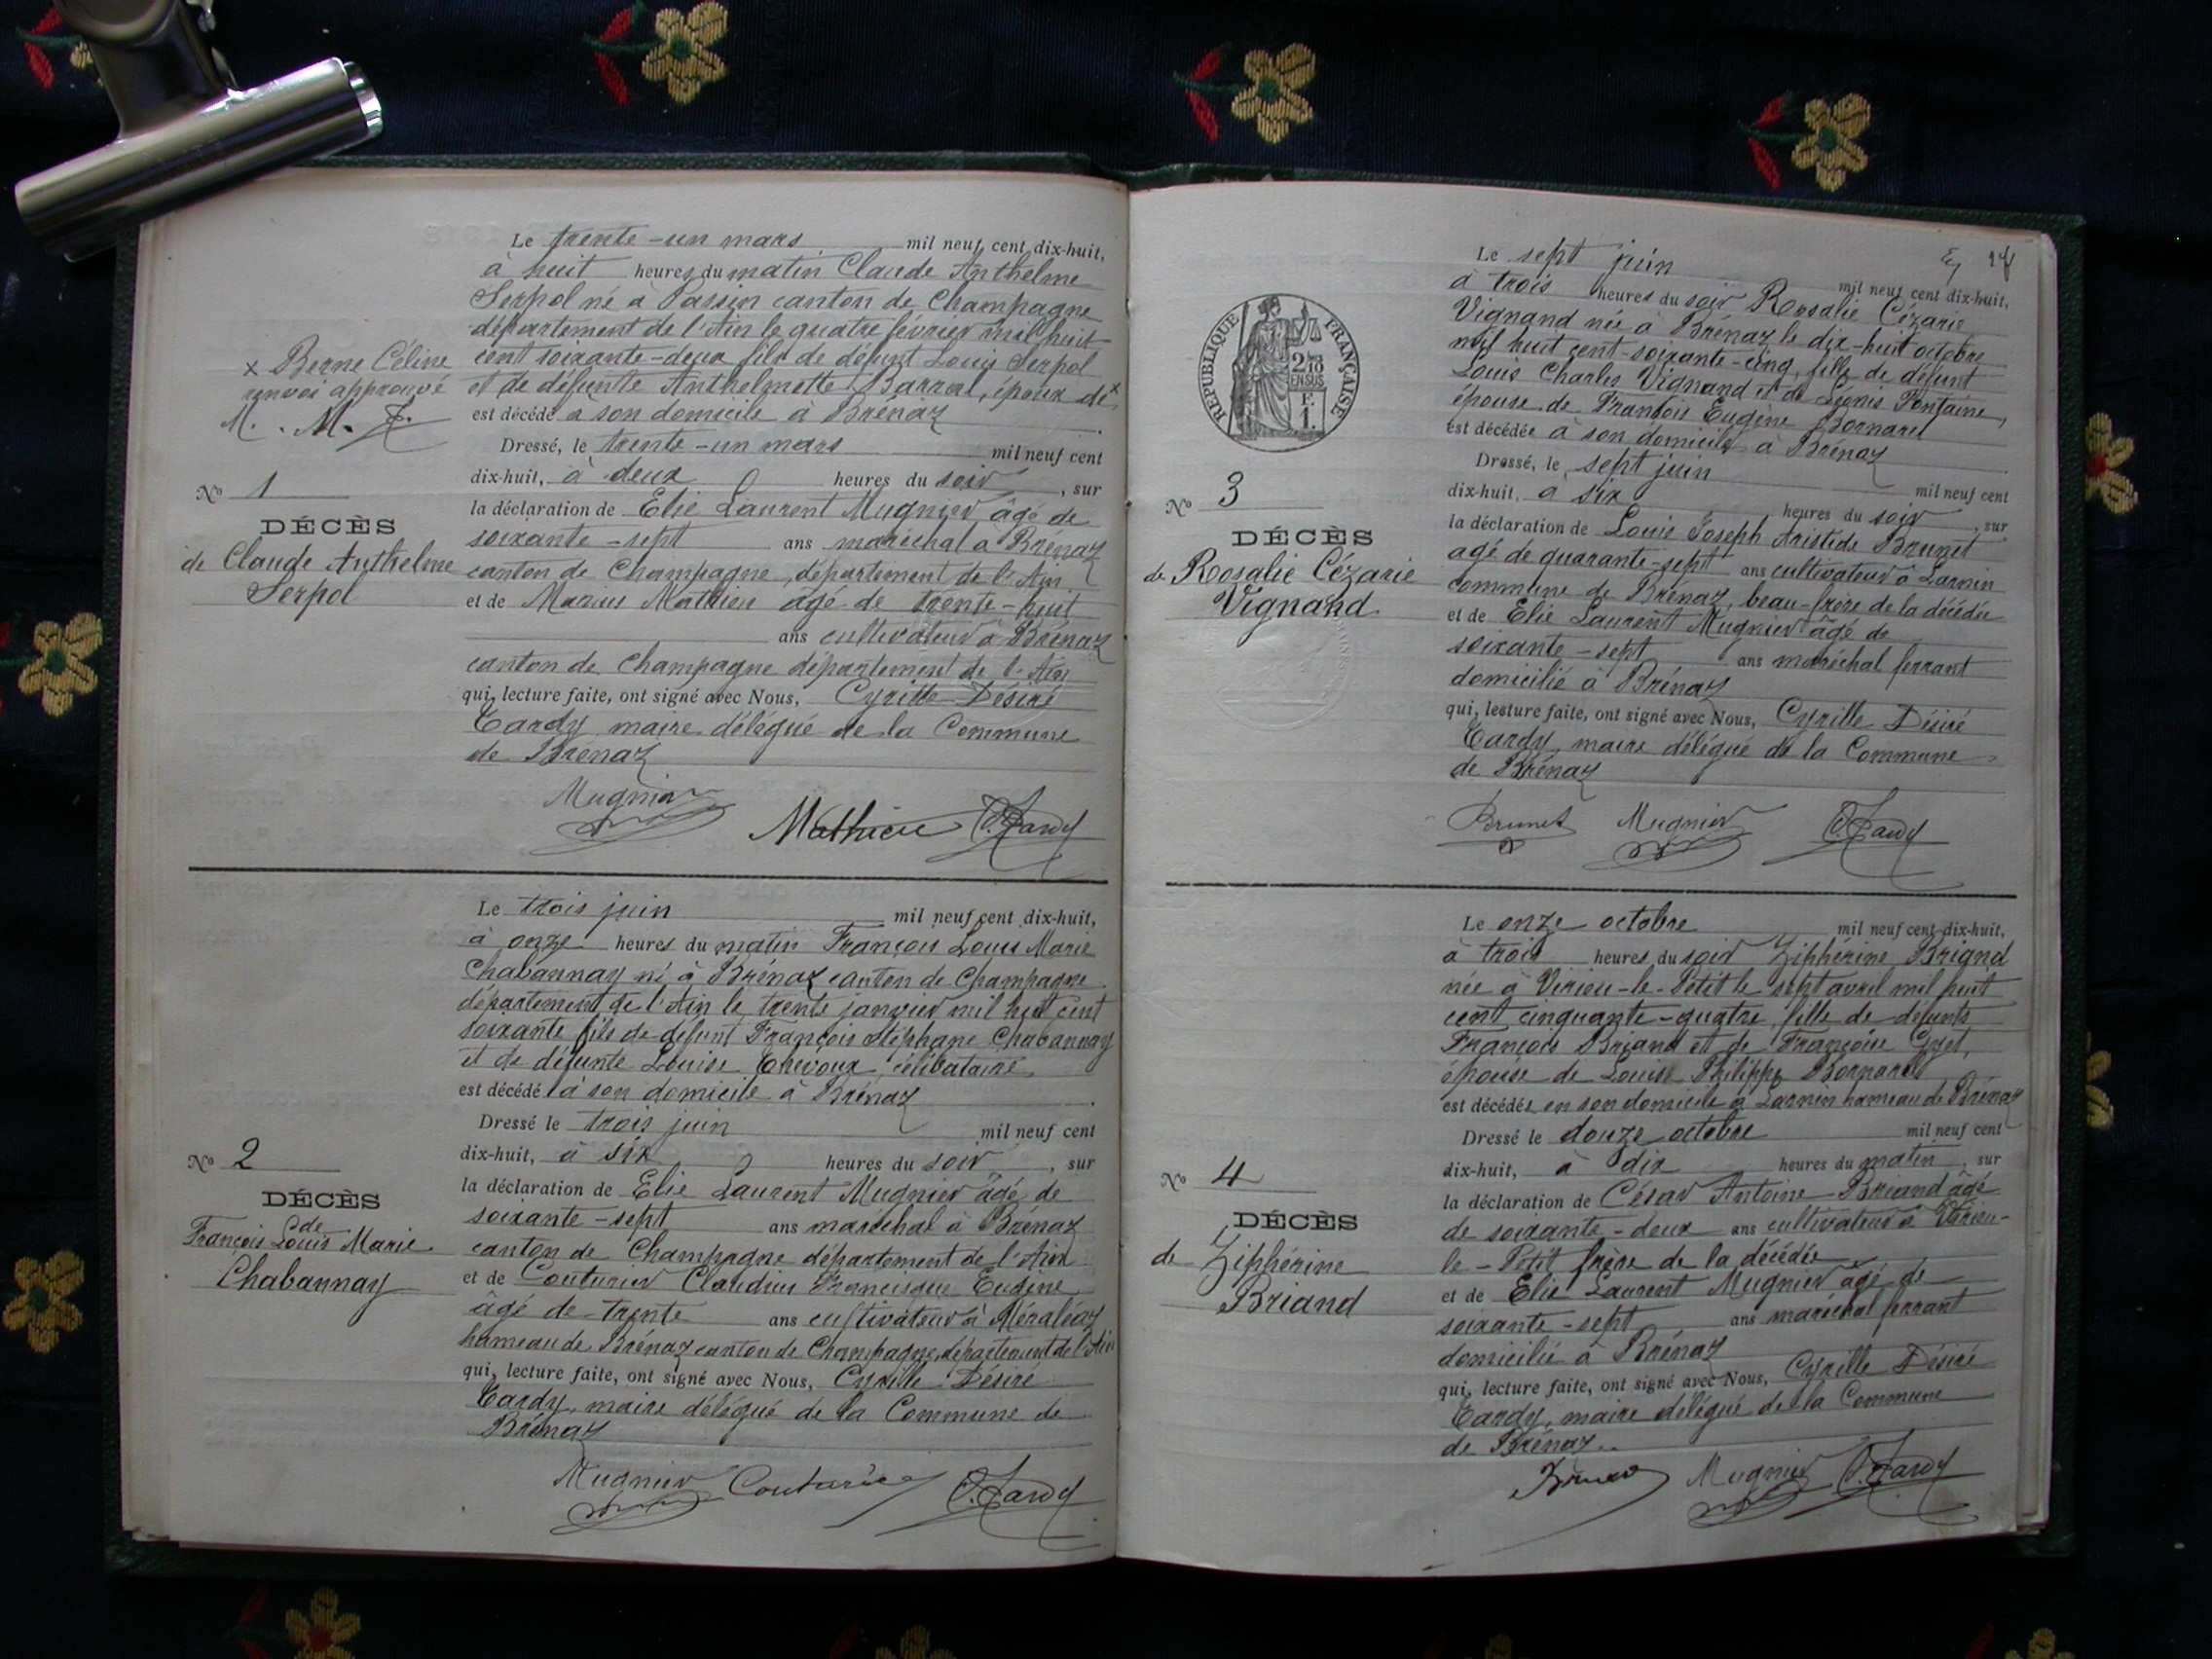 Le trente-un mars mil neuf cent dix-huit,
à huit heures du matin Claude Anthelme
Serpol né à Passin canton de Champagne
département de l'Ain le quatre février mil huit
cent soixante-deux fils de défunt Louis Serpol
et de défunte Anthelmette Barral, époux de x
est décédé à son domicile à Brénaz
x Berne Céline
renvoi approuvé
M. M. T.
Dressé, le trente-un mars mil neuf cent
dix-huit, à deux heures du soir, sur
la déclaration de Elie Laurent Mugnier âgé de
soixante-sept ans maréchal à Brénaz
canton de Champagne, département de l'Ain
et de Marius Mathieu âgé de trente-huit
ans cultivateur à Brénaz
canton de Champagne département de l'Ain
qui, lecture faite, ont signé avec Nous, Cyrille Désiré
Tardy, maire délégué de la Commune
de Brénaz
Mugnier Mathieu C. Tardy
No 1
DÉCÈS
de Claude Anthelme
Serpol
Le trois juin mil neuf cent dix-huit,
à onze heures du matin François Louis Marie
Chabannay né à Brénaz canton de Champagne
département de l'Ain le trente janvier mil huit cent
soixante fils de défunt François Stéphane Chabannay
et de défunte Louise célibataire
est décédé à son domicile à Brénaz
Dressé le trois juin mil neuf cent
dix-huit, à six heures du soir, sur
la déclaration de Elie Laurent Mugnier âgé de
soixante-sept ans maréchal à Brénaz
canton de Champagne département de l'Ain
et de Couturier Claudius Francisque Eugène
âgé de trente ans cultivateur à Méraléaz
hameau de Brénaz canton de Champagne, département de l'Ain
qui, lecture faite, ont signé avec Nous, Cyrille Désiré
Tardy, maire délégué de la Commune de
Brénaz
Mugnier Couturier C. Tardy
No 2
DÉCÈS
de
François Louis Marie
Chabannay
Le sept juin mil neuf cent dix-huit,
à trois heures du soir Rosalie Cézarie
Vignand née à Brénaz le dix-huit octobre
mil huit cent-soixante-cinq, fille de défunt
Louis Charles Vignand et de Léonis Fontaine,
épouse de François Eugène Bornarel
est décédée à son domicile à Brénaz
Dressé, le sept juin mil neuf cent
dix-huit, à six heures du soir, sur
la déclaration de Louis Joseph Aristide Brunet
agé de quarante-sept ans cultivateur à Larnin
commune de Brénaz, beau-frère de la décédée
et de Elie Laurent Mugnier âgé de
soixante-sept ans maréchal ferrant
domicilié à Brénaz
qui, lecture faite, ont signé avec Nous, Cyrille Désiré
Tardy, maire délégué de la Commune
de Brénaz
Brunet Mugnier C. Tardy
RÉPUBLIQUE FRANÇAISE
2/10
EN SUS
F.
1.
No 3
DÉCÈS
de Rosalie Cézarie
Vignand
Le onze octobre mil neuf cent dix-huit,
à trois heures du soir Ziphérine Briand
née à Virieu-le-Petit le sept avril mil huit
cent cinquante-quatre, fille de défunts
François Briand et de Françoise
épouse de Louis Philippe Bornarel
est décédée en son domicile à Larnin hameau de Brénaz
Dressé le douze octobre mil neuf cent
dix-huit, à dix heures du matin, sur
la déclaration de César Antoine Briand âgé
de soixante-deux ans cultivateur à Virieu-
le-Petit frère de la décédée
et de Elie Laurent Mugnier âgé de
soixante-sept ans maréchal ferrant
domicilié à Brénaz
qui, lecture faite, ont signé avec Nous, Cyrille Désiré
Tardy, maire délégué de la Commune
de Brénaz
Mugnier C. Tardy
No 4
DÉCÈS
de Ziphérine
Briand